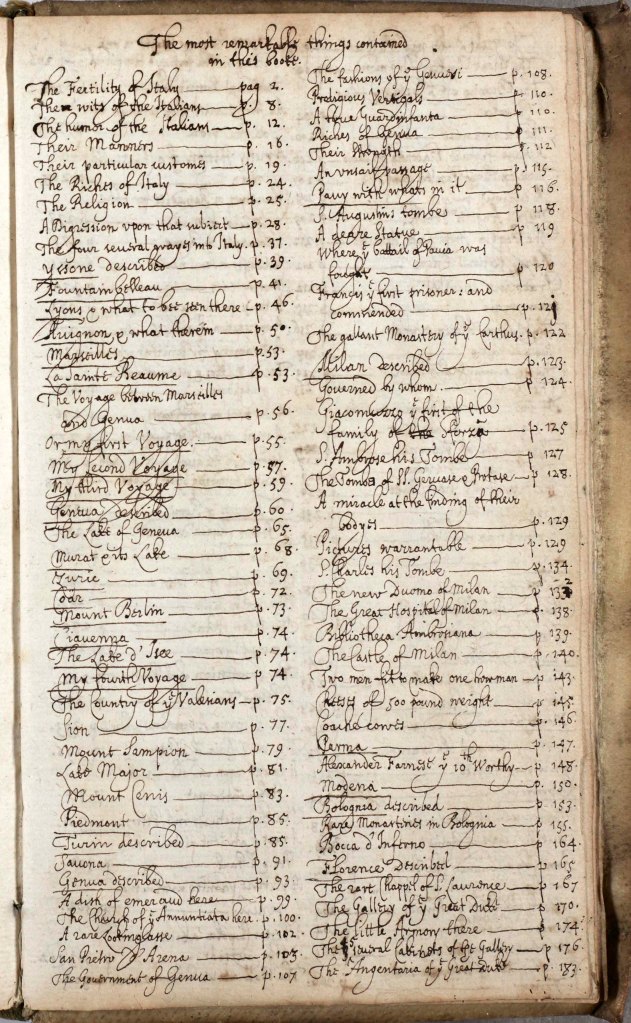 The most remarkable things contained
in this booke.
The Fertility of Italy — pag 2.
The wits of the Italians — p. 8.
The humor of the Italians — p. 12.
Their Manners — p. 16.
Their particular customes — p. 19.
The Riches of Italy — p. 24.
The Religion — p. 25.
A Digression vpon that subiect — p. 28.
The four several wayes into Italy. p. 37.
described — p. 39.
Fountainbelleau — p. 41.
Lyons & what to bee seen there — p. 46.
Auignon & what therein — p. 50.
Marseilles — p. 53.
La Sainte Beaume — p. 53.
The Voyage between Marseilles
and Genua — p. 56.
Or my first Voyage. — p. 55.
My second Voyage — p. 57.
My third Voyage — p. 59.
Geneua described — p. 60.
The Lake of Geneua — p. 65.
Murat & its Lake — p. 68.
Zuric — p. 69.
Coar — p. 72.
Mount Berlin — p. 73.
Ciavenna — p. 74.
The Lake d' Isee — p. 74.
My fourth Voyage — p. 74.
The Country of yͤ Valesians — p. 75.
Sion — p. 77.
Mount Sampion — p. 79.
Lake Major — p. 81.
Mount Cenis — p. 83.
Piedmont — p. 85.
Turin described — p. 85.
Savona — p. 91.
Genua described — p. 93.
A dish of emeraud here — p. 99.
The Church of yͤ Annuntiata here. p. 100.
A rare Lookinglasse — p. 102.
San Pietro d' Arena — p. 103.
The Government of Genua — p. 107
The fashions of yͤ Genuesi — p. 108.
Religious Vertigals — p. 110.
A true Guardinfanta — p. 110.
Riches of Genua — p. 111.
Their Strength — p. 112
An vnsafe passage — p. 115.
Pavy with whats in it — p. 116.
S. Augustins tombe — p. 118.
A degre Statue — p. 119
Where yͤ battail of Pauia was
fought — p. 120
Francis yͤ first prisoner: and
comended — p. 121
The gallant Monastery of yͤ Carthus. p. 122
Milan described — p. 123.
Governed by whom — p. 124.
Giacomuzzo yͤ first of the
family of the Sforza — p. 125
S. Ambrose his Tombe — p. 127
The Tombs of SS. Gervase & Protase — p. 128.
A miracle at the finding of their
bodyes — p. 129
Pictures warrantable — p. 129
S. Charles his Tombe — p. 134.
The new Duomo of Milan — p. 132
The Great Hospital of Milan — p. 138.
Bibliotheca Ambrosiana — p. 139.
The Castle of Milan — p. 140.
Two men fit to make one horsman — p. 143.
Cheeses of 500 pound weight — p. 145.
Coache cowes — p. 146.
Parma — p. 147.
Alexander Farnese yͤ 10th Worthy — p. 148.
Modena — p. 150.
Bolognia described — p. 153.
Rare Monasteries in Bolognia — p. 155.
Bocca d' Inferno — p. 164.
Florence Described — p. 165
The rare Chappel of S. Laurence — p. 167
The Gallery of yͤ Great Duke — p. 170.
The little Armory there — p. 174.
The several Cabinets of the Gallery — p. 176.
The Argentaria of yͤ Great Duke — p. 183.